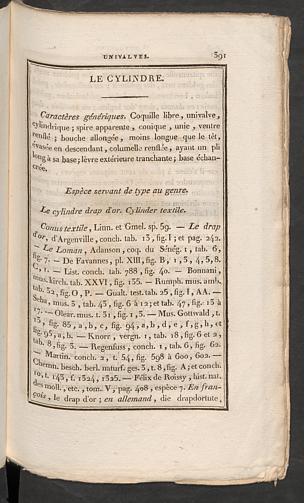 UNIVALVES. 391
LE CYLINDRE.
Caractères génériques. Coquille libre, univalve,
cylindrique; spire apparente, conique, unie, ventre
renflé; bouche allongée, moins longue que le têt,
évasée en descendant, columelle renflée, ayant un pli
long à sa base; lèvre extérieure tranchante; base échan-
crée.
Espèce servant de type au genre.
Le cylindre drap d'or. Cylinder textile.
Conus textile, Linn. et Gmel. sp. 59. — Le drap
d'or, d'Argenville, conch. tab. 13, fig. I; et pag. 242.
— Le Loman, Adanson, coq. du Sénég. 1, tab. 6,
fig. 7. — De Favannes, pl. XIII, fig. B, 1, 3, 4, 5, 8.
C, 1. — List. conch. tab. 788, fig. 40. — Bonnani,
mus. kirch. tab. XXVI, fig. 135. — Rumph. mus. amb.
tab. 32, fig. O, P. — Gualt. test. tab. 25, fig. I, AA. —
Seba, mus. 3, tab. 43, fig. 6 à 12; et tab. 47, fig. 13 à
17. — Olear. mus. t. 31, fig. 1, 3. — Mus. Gottwald, t.
13, fig. 85, a, b, c, fig. 94, a, b, d, e, f, g, h, et
fig. 95, a, b. — Knorr, vergn. 1, tab. 18, fig. 6 et 2,
tab. 8, fig. 3. — Regenfuss, conch. 1, tab. 6, fig. 62.
— Martin. conch. 2, t. 54, fig. 598 à 600, 602. —
Chemn. besch. berl. naturf. ges. 3, t. 8, fig. A; et conch.
10, t. 143, f. 1324, 1325. — Félix de Roissy, hist. nat.
des moll., etc., tom. V, pag. 408, espèce 7. En fran-
çois, le drap d'or; en allemand, die drapdortute,